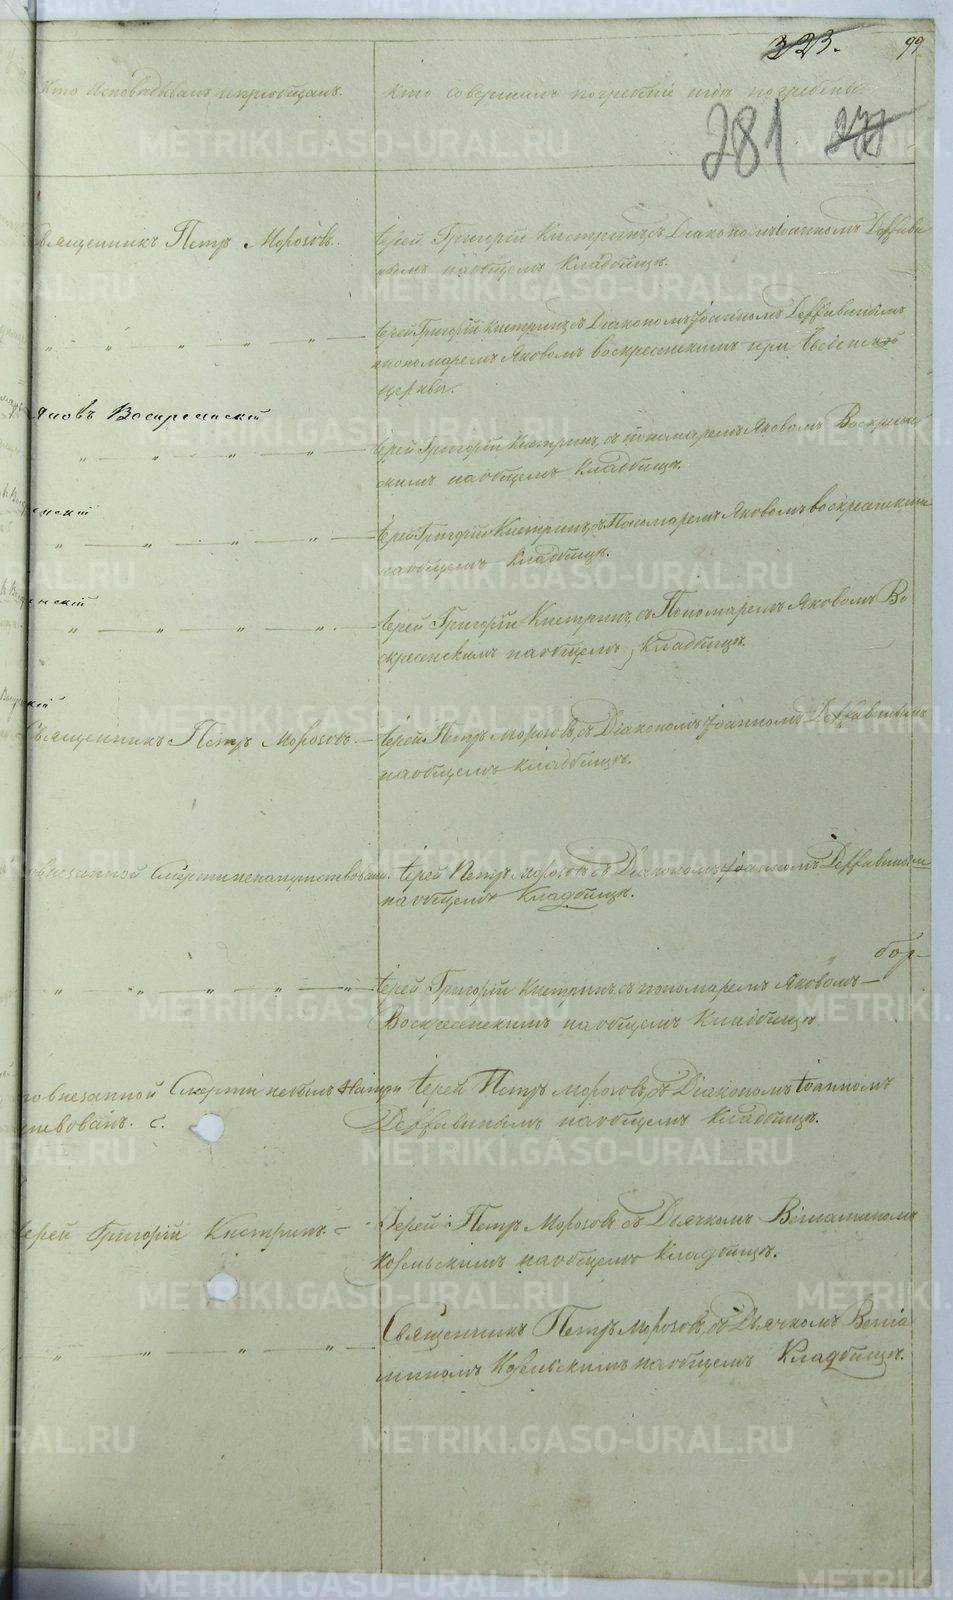 323. 99
Кто исповѣдывалъ и пріобщалъ. Кто совершалъ погребеніе и гдѣ погребены.
281 277
Священникъ Петръ Морозовъ. Іерей Григорій Кистринъ съ Діакономъ Іоанномъ
на общемъ Кладбищѣ.
Іерей Григорій Кистринъ съ Діакономъ Іоанномъ
и пономаремъ Яковомъ Воскресенскимъ при
церкви.
Яковъ Воскресенскій
Іерей Григорій Кистринъ, съ пономаремъ Яковомъ Воскресен
скимъ на общемъ Кладбищѣ.
енскій
Іерей Григорій Кистринъ, съ Пономаремъ Яковомъ Воскресенскимъ
на общемъ Кладбищѣ.
нскій
Іерей Григорій Кистринъ, съ Пономаремъ Яковомъ Во
скресенскимъ на общемъ Кладбищѣ.
кій
Священникъ Петръ Морозовъ Іерей Петръ Морозовъ, съ Діакономъ Іоанномъ
на общемъ кладбищѣ.
по внезапной Смерти не напутствованъ. Іерей Петръ Морозовъ съ Діакономъ Іоанномъ
на общемъ Кладбищѣ.
Іерей Григорій Кистринъ, съ пономаремъ Яковомъ
Воскресенскимъ на общемъ Кладбищѣ
по внезапной Смерти небылъ Напут Іерей Петръ Морозовъ, съ Діакономъ Іоанномъ
ствованъ. на общемъ Кладбищѣ.
Іерей Григорій Кистринъ. Іерей Петръ Морозовъ съ Дьячкомъ Веніаминомъ
на общемъ Кладбищѣ.
Священникъ Петръ Морозовъ, съ Дьячкомъ Веніа
миномъ на общемъ Кладбищѣ.
METRIKI.GASO-URAL.RU